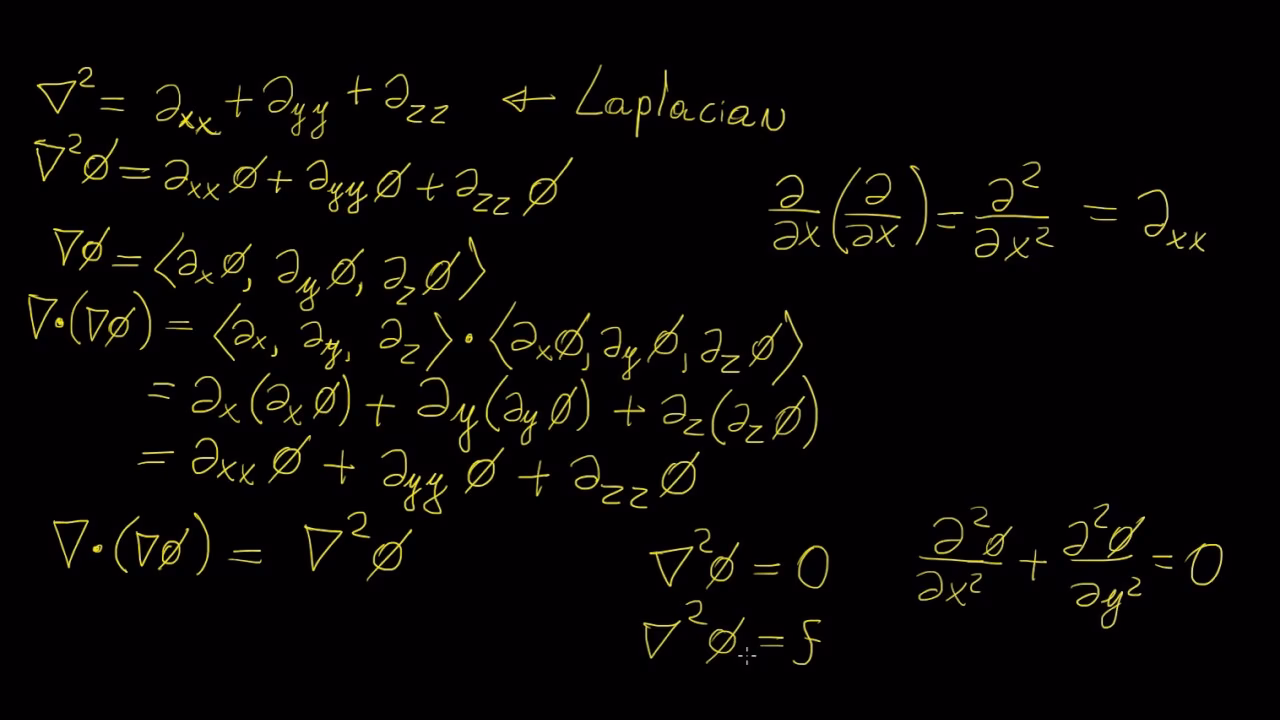 ∇² = ∂xx + ∂yy + ∂zz ← Laplacian
∇²ϕ = ∂xx ϕ + ∂yy ϕ + ∂zz ϕ
∂/∂x (∂/∂x) = ∂²/∂x² = ∂xx
∇ϕ = ⟨∂xϕ, ∂yϕ, ∂zϕ⟩
∇·(∇ϕ) = ⟨∂x, ∂y, ∂z⟩ · ⟨∂xϕ, ∂yϕ, ∂zϕ⟩
= ∂x(∂xϕ) + ∂y(∂yϕ) + ∂z(∂zϕ)
= ∂xx ϕ + ∂yy ϕ + ∂zz ϕ
∇·(∇ϕ) = ∇²ϕ
∇²ϕ = 0
∂²ϕ/∂x² + ∂²ϕ/∂y² = 0
∇²ϕ = f